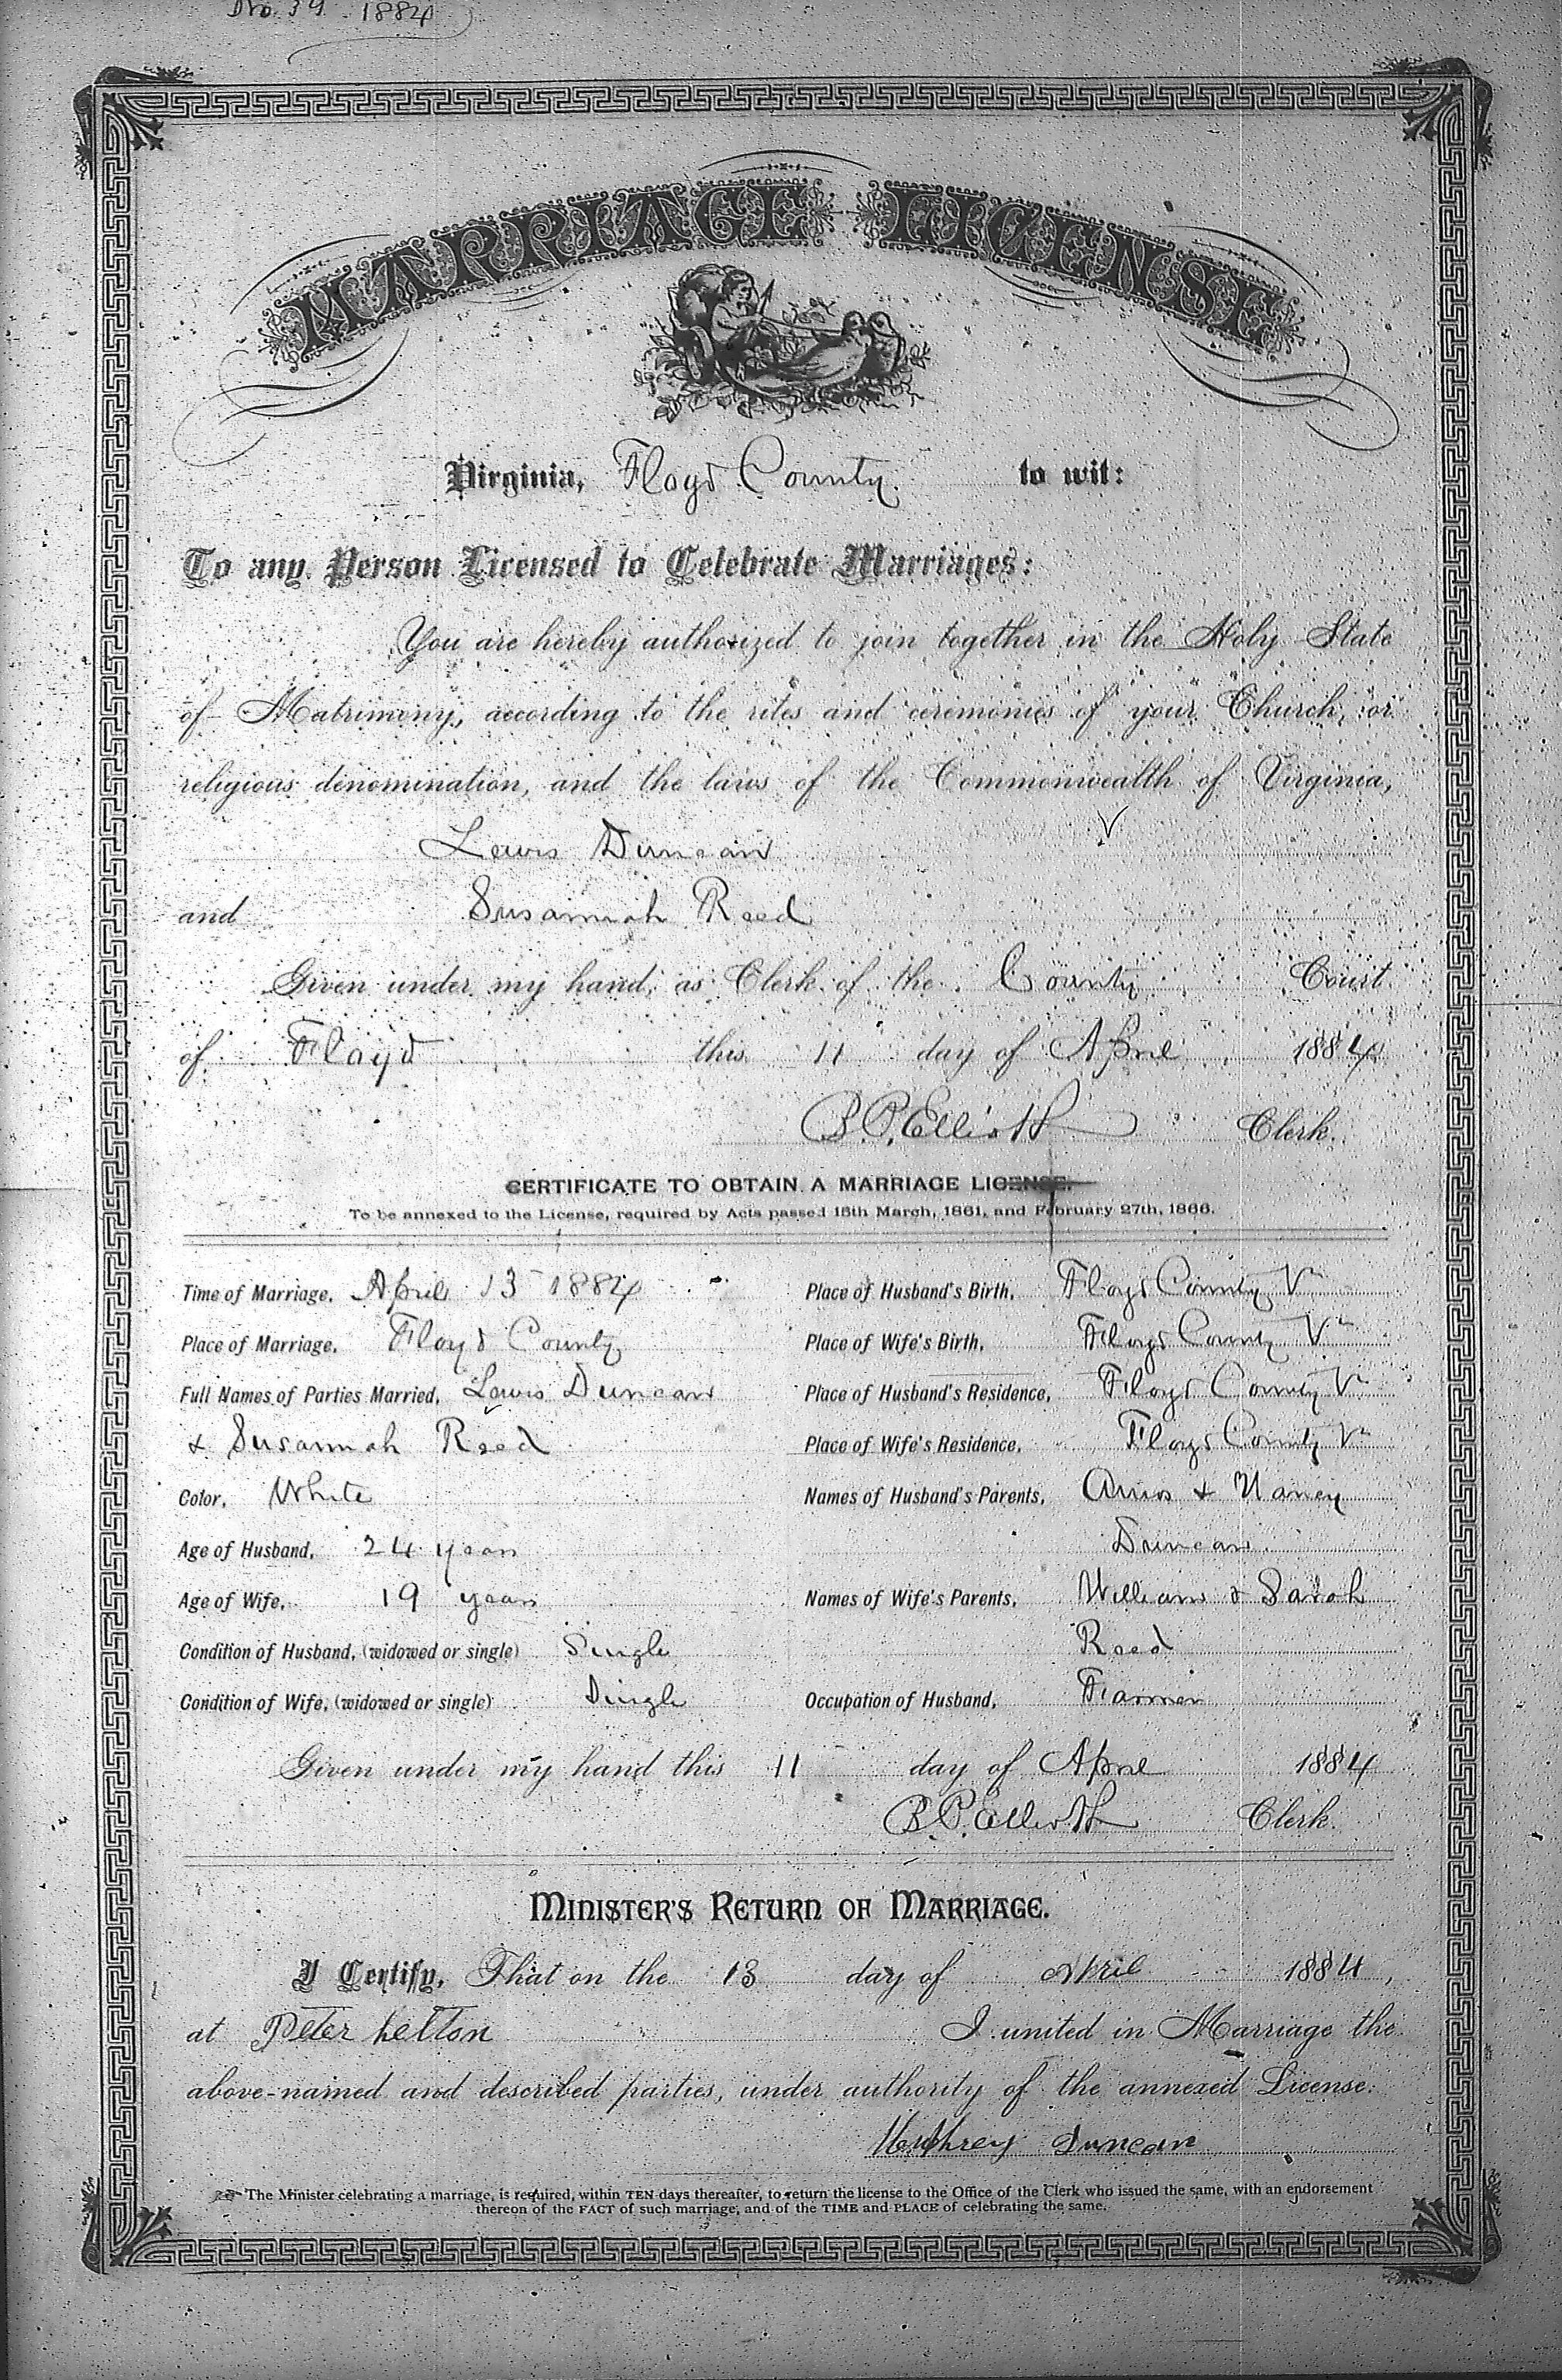 No. 39 1884
MARRIAGE LICENSE
Virginia, Floyd County to wit:
To any Person Licensed to Celebrate Marriages:
You are hereby authorized to join together in the Holy State
of Matrimony, according to the rites and ceremonies of your Church, or
religious denomination, and the laws of the Commonwealth of Virginia,
Lewis Duncan
and Susannah Reed
Given under my hand, as Clerk of the County Court
of Floyd this 11 day of April 1884
Clerk.
CERTIFICATE TO OBTAIN A MARRIAGE LICENSE.
To be annexed to the License, required by Acts passed 15th March, 1861, and February 27th, 1866.
Time of Marriage, April 13 1884
Place of Marriage, Floyd County
Full Names of Parties Married, Lewis Duncan
& Susannah Reed
Color, White
Age of Husband, 24 years
Age of Wife, 19 years
Condition of Husband, (widowed or single) Single
Condition of Wife, (widowed or single) Single
Place of Husband's Birth, Floyd County Va
Place of Wife's Birth, Floyd County Va
Place of Husband's Residence, Floyd County Va
Place of Wife's Residence, Floyd County Va
Names of Husband's Parents, Amos & Nancy
Duncan
Names of Wife's Parents, William & Sarah
Reed
Occupation of Husband, Farmer
Given under my hand this 11 day of April 1884
Clerk.
MINISTER'S RETURN OF MARRIAGE.
I Certify, That on the 13 day of April 1884,
at Peter I united in Marriage the
above-named and described parties, under authority of the annexed License.
Humphrey Duncan
The Minister celebrating a marriage, is required, within TEN days thereafter, to return the license to the Office of the Clerk who issued the same, with an endorsement
thereon of the FACT of such marriage, and of the TIME and PLACE of celebrating the same.